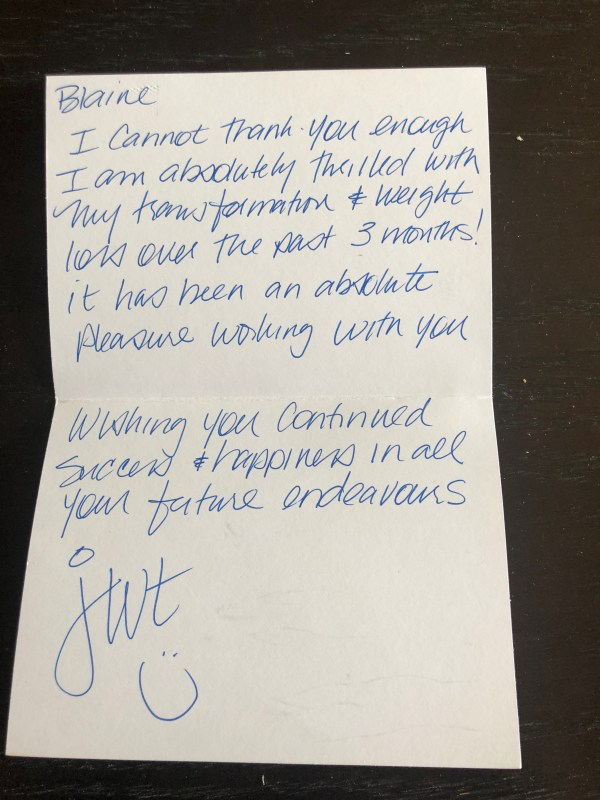 Blaine
I Cannot thank you enough
I am absolutely thrilled with
my transformation & weight
loss over the past 3 months!
it has been an absolute
pleasure working with you
Wishing you Continued
Success & happiness in all
your future endeavours
jwt